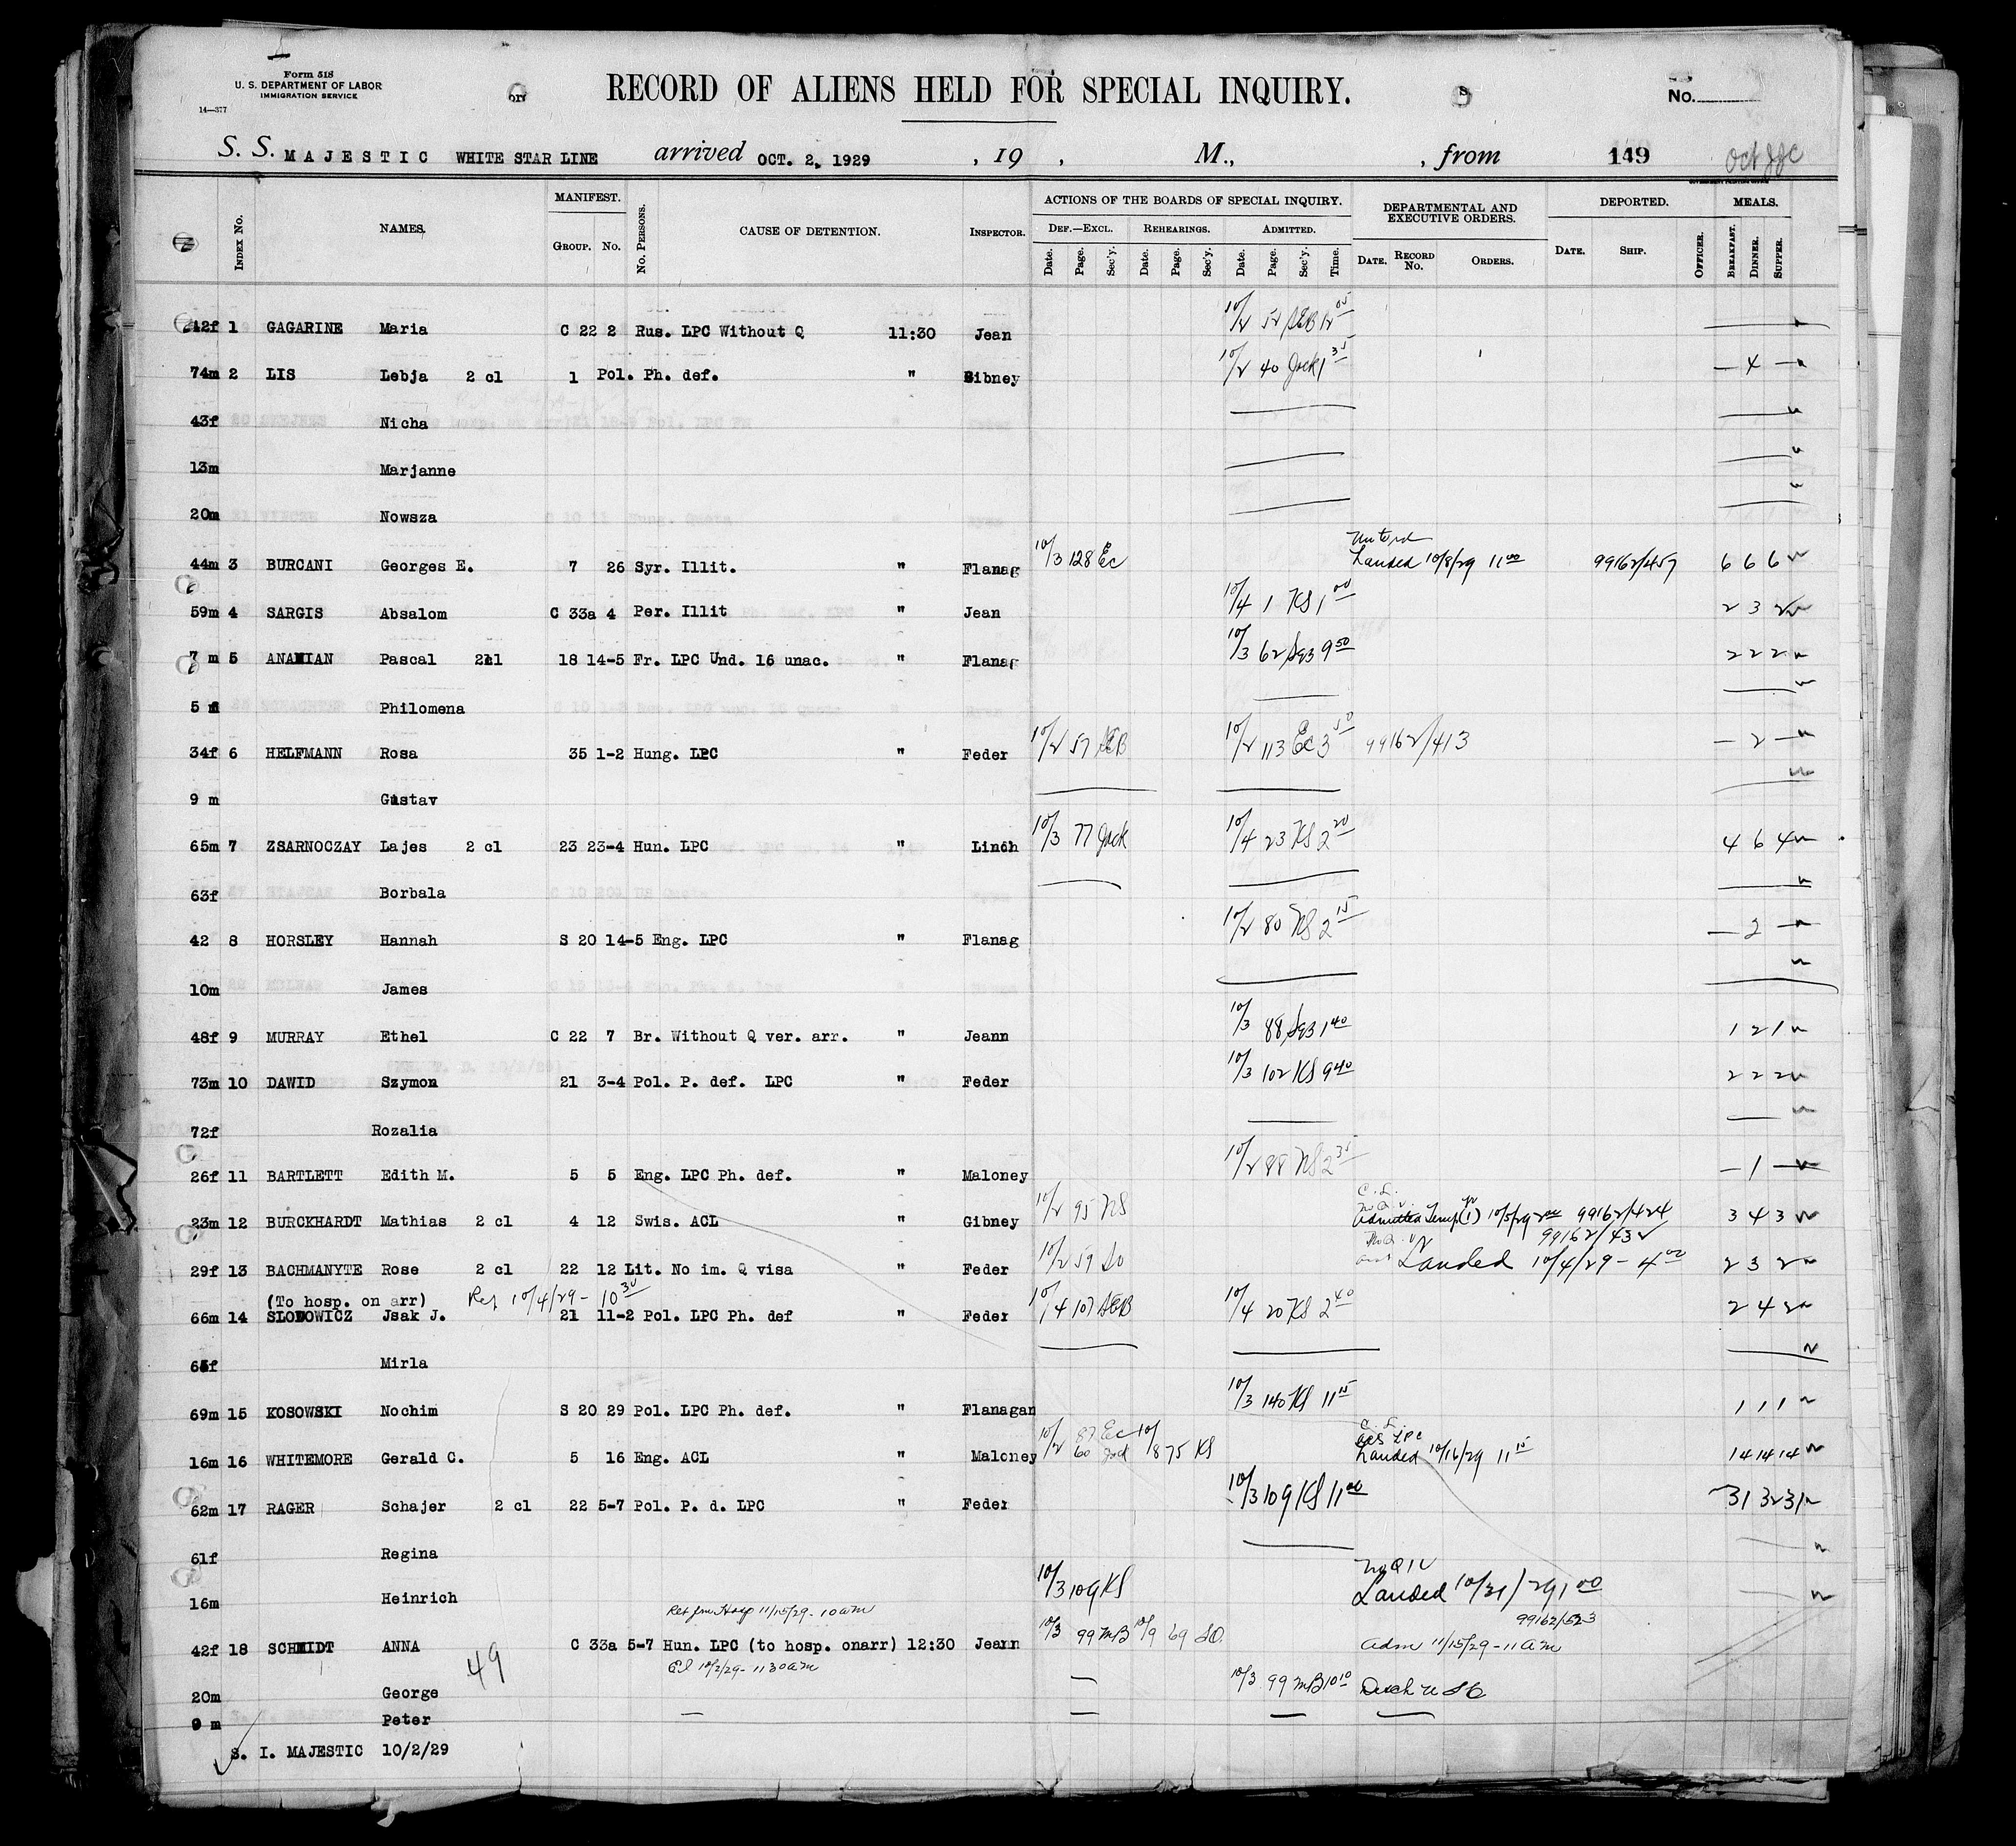 Form 518
U. S. DEPARTMENT OF LABOR
IMMIGRATION SERVICE
14—377
RECORD OF ALIENS HELD FOR SPECIAL INQUIRY.
No.
S. S. MAJESTIC WHITE STAR LINE arrived OCT. 2, 1929 , 19 , M., , from 149
INDEX No. NAMES. MANIFEST. GROUP. No. No. PERSONS. CAUSE OF DETENTION. INSPECTOR. ACTIONS OF THE BOARDS OF SPECIAL INQUIRY. DEF.—EXCL. REHEARINGS. ADMITTED. DEPARTMENTAL AND EXECUTIVE ORDERS. DEPORTED. MEALS.
Date. Page. Sec'y. Date. Page. Sec'y. Date. Page. Sec'y. Time. DATE. RECORD No. ORDERS. DATE. SHIP. OFFICER. BREAKFAST. DINNER. SUPPER.
42f 1 GAGARINE Maria C 22 2 Rus. LPC Without Q 11:30 Jean 10/2 52 AEB 12 05
74m 2 LIS Lebja 2 cl 1 Pol. Ph. def. " Gibney 10/2 40 Jack 1 35 — 4 —
43f Nicha
13m Marjanne
20m Nowsza
44m 3 BURCANI Georges E. 7 26 Syr. Illit. " Flanag 10/3 128 Ec Landed 10/8/29 11 00 99162/457 6 6 6
59m 4 SARGIS Absalom C 33a 4 Per. Illit " Jean 10/4 1 KS 1 00 2 3 2
7 m 5 ANANIAN Pascal 2cl 18 14-5 Fr. LPC Und. 16 unac. " Flanag 10/3 62 9 50 2 2 2
5 f Philomena
34f 6 HELFMANN Rosa 35 1-2 Hung. LPC " Feder 10/2 57 AEB 10/2 113 Ec 3 50 99162/413 — 2 —
9 m Gustav
65m 7 ZSARNOCZAY Lajes 2 cl 23 23-4 Hun. LPC " Linch 10/3 77 Jack 10/4 23 KS 2 20 4 6 4
63f Borbala
42 8 HORSLEY Hannah S 20 14-5 Eng. LPC " Flanag 10/2 80 NS 2 15 — 2 —
10m James
48f 9 MURRAY Ethel C 22 7 Br. Without Q ver. arr. " Jeann 10/3 88 1 40 1 2 1
73m 10 DAWID Szymon 21 3-4 Pol. P. def. LPC " Feder 10/3 102 KS 9 40 2 2 2
72f Rozalia
26f 11 BARTLETT Edith M. 5 5 Eng. LPC Ph. def. " Maloney 10/2 88 NS 2 35 — 1 —
23m 12 BURCKHARDT Mathias 2 cl 4 12 Swis. ACL " Gibney 10/2 95 NS Admitted Temp (1) 10/5/29 2 00 99162/424 3 4 3
99162/432
29f 13 BACHMANYTE Rose 2 cl 22 12 Lit. No im. Q visa " Feder 10/2 59 SO Landed 10/4/29 – 4 00 2 3 2
(To hosp. on arr) Ret 10/4/29 – 10 30
66m 14 SLODOWICZ Jsak J. 21 11-2 Pol. LPC Ph. def " Feder 10/4 107 AEB 10/4 20 KS 2 40 2 4 2
65f Mirla
69m 15 KOSOWSKI Nochim S 20 29 Pol. LPC Ph. def. " Flanagan 10/3 140 KS 11 15 1 1 1
16m 16 WHITEMORE Gerald C. 5 16 Eng. ACL " Maloney 10/2 87 Ec 60 10/8 75 KS Landed 10/16/29 11 15 14 14 14
62m 17 RAGER Schajer 2 cl 22 5-7 Pol. P. d. LPC " Feder 10/3 109 KS 11 00 31 32 31
61f Regina
16m Heinrich 10/3 109 KS Landed 10/31/29 1 00
Ret fm Hosp 11/15/29 - 10 am 99162/523
42f 18 SCHMIDT ANNA C 33a 5-7 Hun. LPC (to hosp. onarr) 12:30 Jeann 10/3 99 MB 10/9 69 SO. Adm 11/15/29 – 11 am
49 10/2/29 - 11 30 am
20m George — 10/3 99 MB 10 10
9 m Peter — — — —
S. I. MAJESTIC 10/2/29